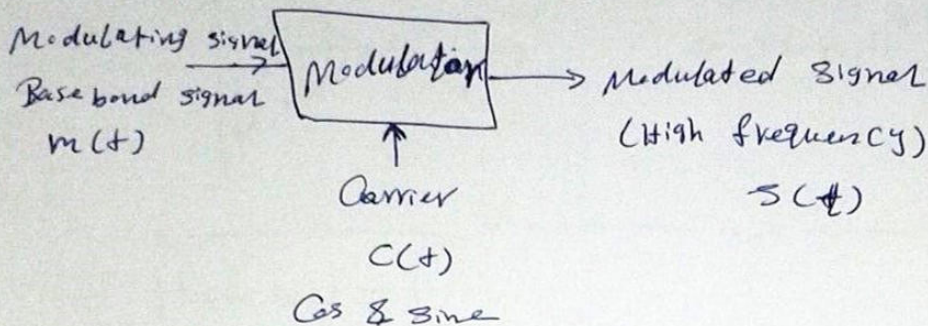 Modulating signal
Base bond signal
m(t)
Modulation
Modulated signal
(High frequency)
S(t)
Carrier
C(t)
Cos & sine